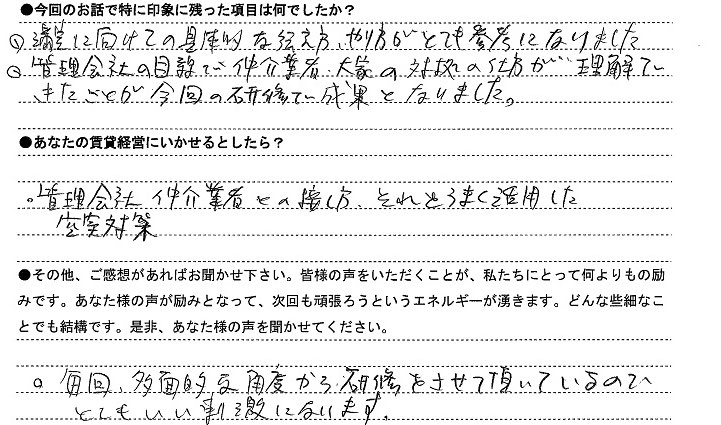 ●今回のお話で特に印象に残った項目は何でしたか?
◎満室に向けての具体的な伝え方、やり方がとても参考になりました
◎管理会社の目線で仲介業者、大家の対抗の仕方が理解で
きたことが今回の研修で成果となりました。
●あなたの賃貸経営にいかせるとしたら?
。管理会社 仲介業者との接し方、それとうまく運用した
空室対策
●その他、ご感想があればお聞かせ下さい。皆様の声をいただくことが、私たちにとって何よりもの励
みです。あなた様の声が励みとなって、次回も頑張ろうというエネルギーが湧きます。どんな些細なこ
とでも結構です。是非、あなた様の声を聞かせてください。
。毎回、多面的な角度から研修をさせて頂いているので
とてもいい刺激になります。